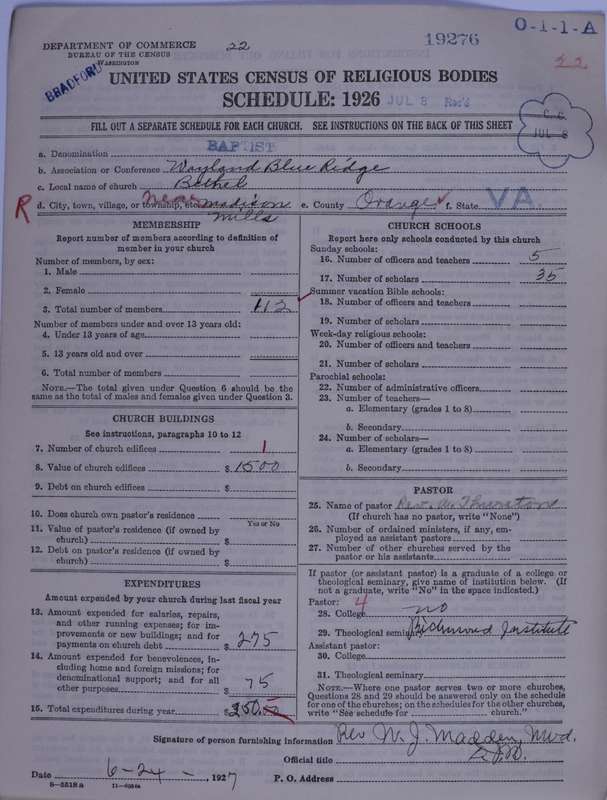 O-1-1-A
DEPARTMENT OF COMMERCE 22 19276
BUREAU OF THE CENSUS
WASHINGTON 22
BRADFORD
UNITED STATES CENSUS OF RELIGIOUS BODIES
SCHEDULE: 1926 JUL 8 Rec'd
C. C.
JUL 8
FILL OUT A SEPARATE SCHEDULE FOR EACH CHURCH. SEE INSTRUCTIONS ON THE BACK OF THIS SHEET
a. Denomination BAPTIST
b. Association or Conference Wayland Blue Ridge
c. Local name of church Bethel
R d. City, town, village, or township, etc. near Madison Mills e. County Orange f. State VA
MEMBERSHIP
Report number of members according to definition of
member in your church
Number of members, by sex:
1. Male
2. Female
3. Total number of members 112
Number of members under and over 13 years old:
4. Under 13 years of age
5. 13 years old and over
6. Total number of members
NOTE.—The total given under Question 6 should be the
same as the total of males and females given under Question 3.
CHURCH BUILDINGS
See instructions, paragraphs 10 to 12
7. Number of church edifices 1
8. Value of church edifices $ 1500
9. Debt on church edifices $
10. Does church own pastor's residence?
Yes or No
11. Value of pastor's residence (if owned by
church) $
12. Debt on pastor's residence (if owned by
church) $
EXPENDITURES
Amount expended by your church during last fiscal year
13. Amount expended for salaries, repairs,
and other running expenses; for im-
provements or new buildings; and for
payments on church debt $ 275
14. Amount expended for benevolences, in-
cluding home and foreign missions; for
denominational support; and for all
other purposes $ 75
15. Total expenditures during year $ 350.00
CHURCH SCHOOLS
Report here only schools conducted by this church
Sunday schools:
16. Number of officers and teachers 5
17. Number of scholars 35
Summer vacation Bible schools:
18. Number of officers and teachers
19. Number of scholars
Week-day religious schools:
20. Number of officers and teachers
21. Number of scholars
Parochial schools:
22. Number of administrative officers
23. Number of teachers—
a. Elementary (grades 1 to 8)
b. Secondary
24. Number of scholars—
a. Elementary (grades 1 to 8)
b. Secondary
PASTOR
25. Name of pastor Rev. A. Thurston
(If church has no pastor, write "None")
26. Number of ordained ministers, if any, em-
ployed as assistant pastors
27. Number of other churches served by the
pastor or his assistants
If pastor (or assistant pastor) is a graduate of a college or
theological seminary, give name of institution below. (If
not a graduate, write "No" in the space indicated.)
Pastor: 4
28. College no
29. Theological seminary Richmond Institute
Assistant pastor:
30. College
31. Theological seminary
NOTE.—Where one pastor serves two or more churches,
Questions 28 and 29 should be answered only on the schedule
for one of the churches; on the schedules for the other churches,
write "See schedule for church."
Signature of person furnishing information Rev W. J. Madden, Mod.
Official title
Date 6-24-, 1927 P. O. Address
8—5518 a